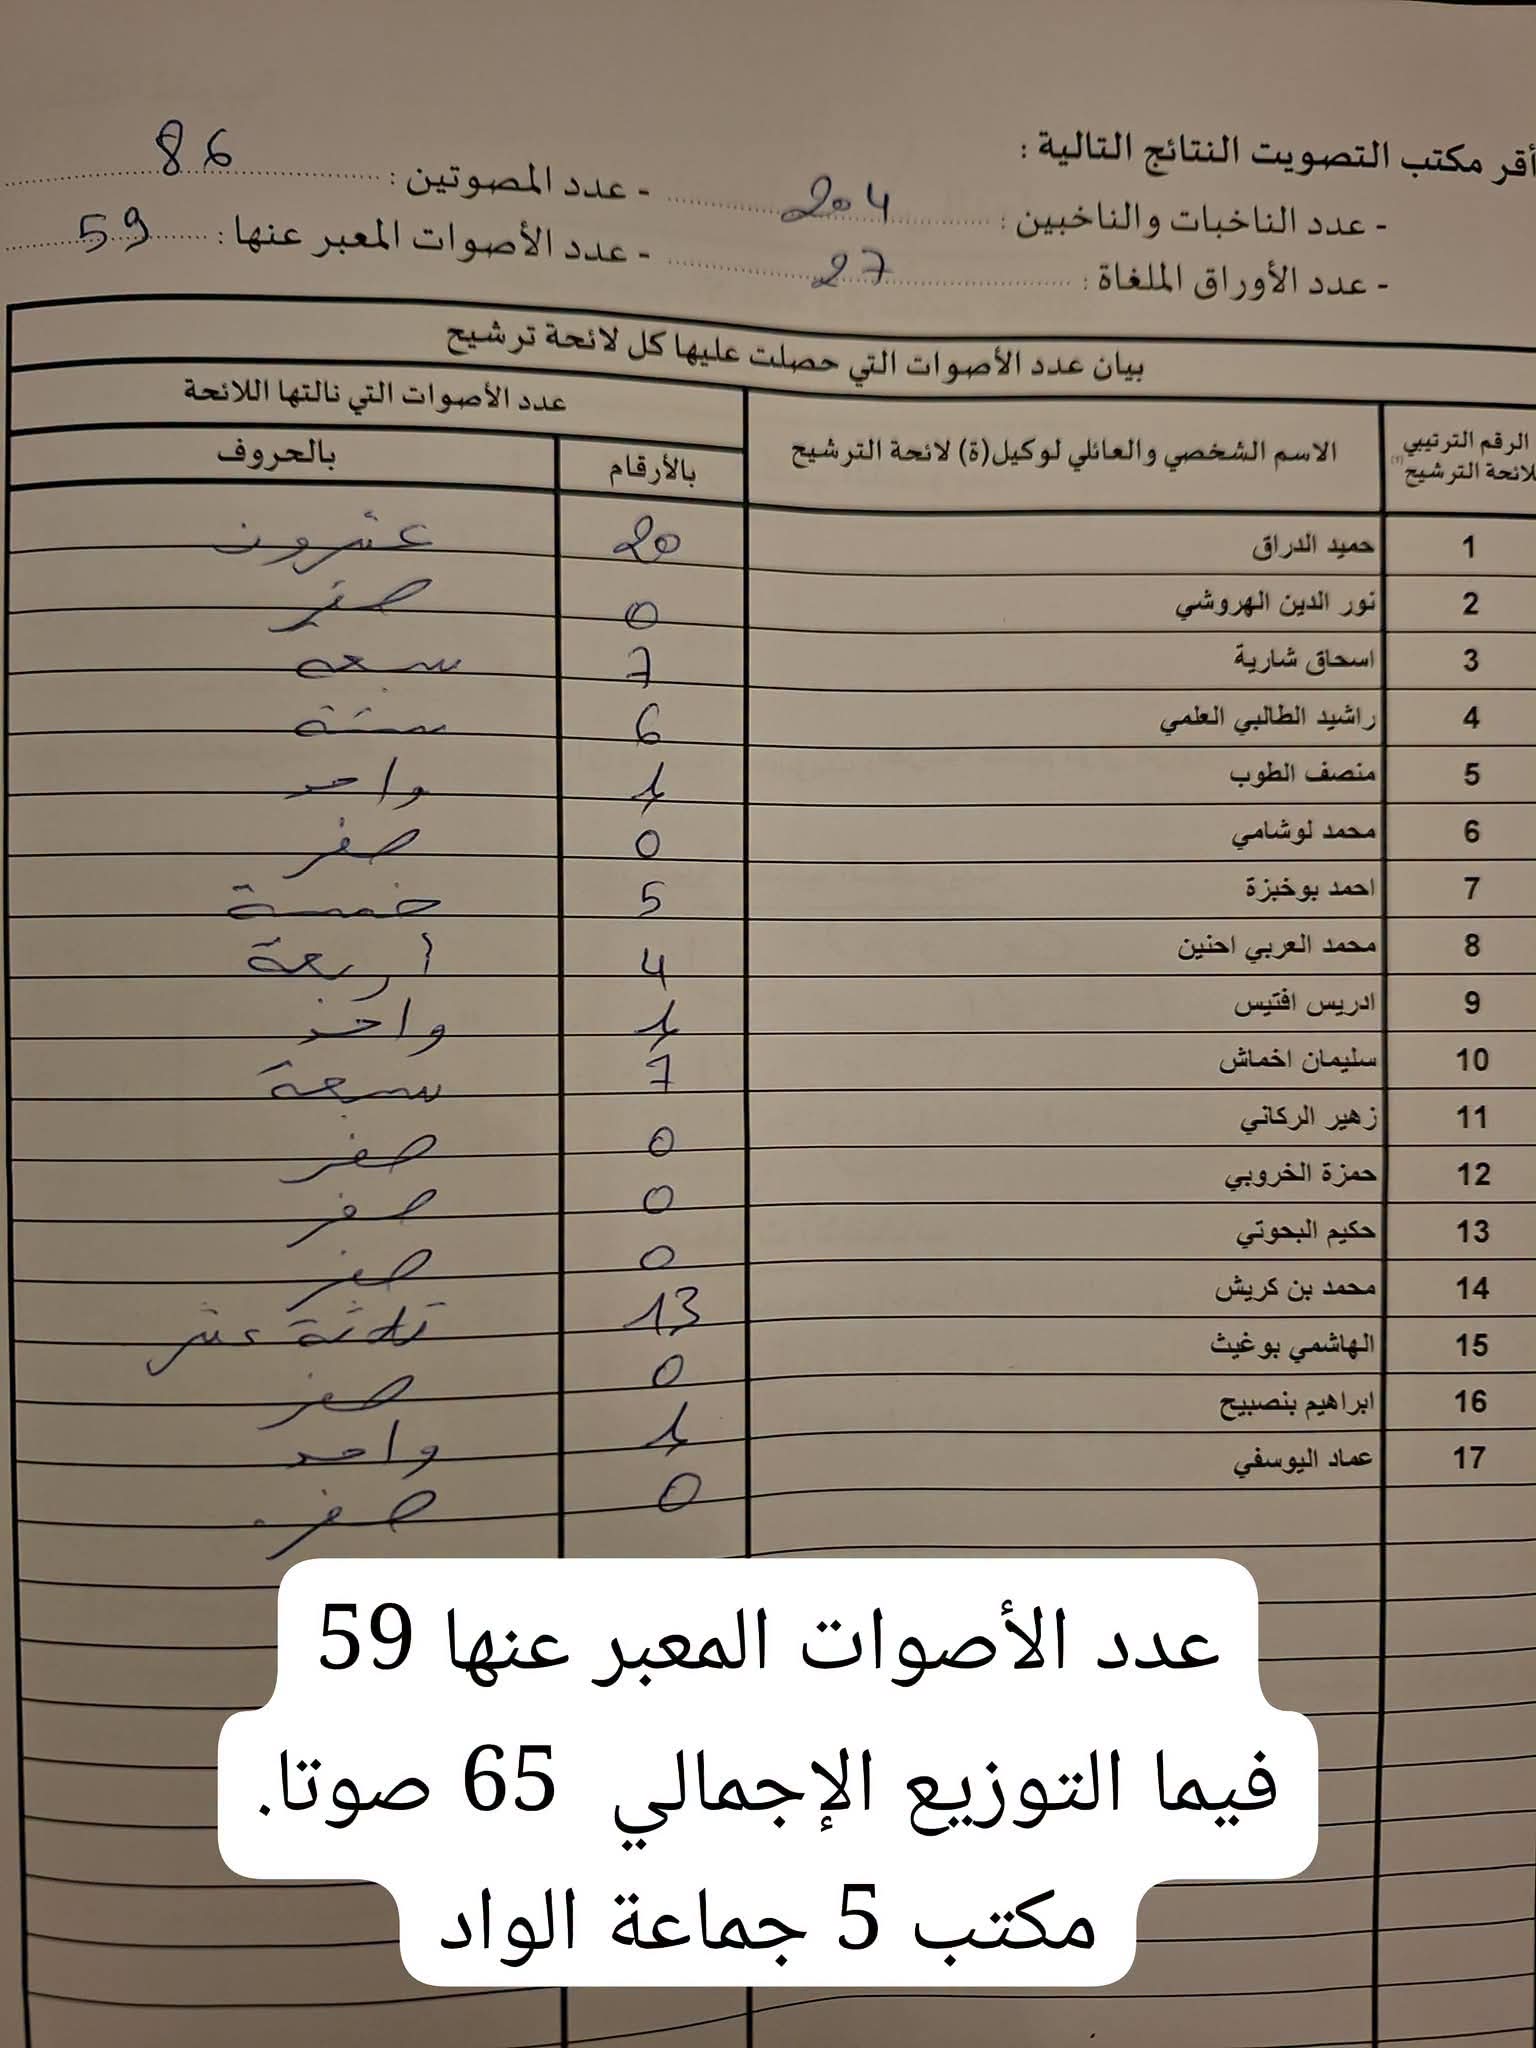 أقر مكتب التصويت النتائج التالية :
- عدد الناخبات والناخبين : 204 - عدد المصوتين : 86
- عدد الأوراق الملغاة : 27 - عدد الأصوات المعبر عنها : 59
بيان عدد الأصوات التي حصلت عليها كل لائحة ترشيح
الرقم الترتيبي للائحة الترشيح (1) الاسم الشخصي والعائلي لوكيل(ة) لائحة الترشيح عدد الأصوات التي نالتها اللائحة
بالأرقام بالحروف
1 حميد الدراق 20 عشرون
2 نور الدين الهروشي 0 صفر
3 اسحاق شارية 7 سبعة
4 راشيد الطالبي العلمي 6 ستة
5 منصف الطوب 1 واحد
6 محمد لوشامي 0 صفر
7 احمد بوخبزة 5 خمسة
8 محمد العربي احنين 4 أربعة
9 ادريس افتيس 1 واحد
10 سليمان اخماش 7 سبعة
11 زهير الركاني 0 صفر
12 حمزة الخروبي 0 صفر
13 حكيم البحوتي 0 صفر
14 محمد بن كريش 13 ثلاثة عشر
15 الهاشمي بوغيث 0 صفر
16 ابراهيم بنصبيح 1 واحد
17 عماد اليوسفي 0 صفر
عدد الأصوات المعبر عنها 59
فيما التوزيع الإجمالي 65 صوتا.
مكتب 5 جماعة الواد